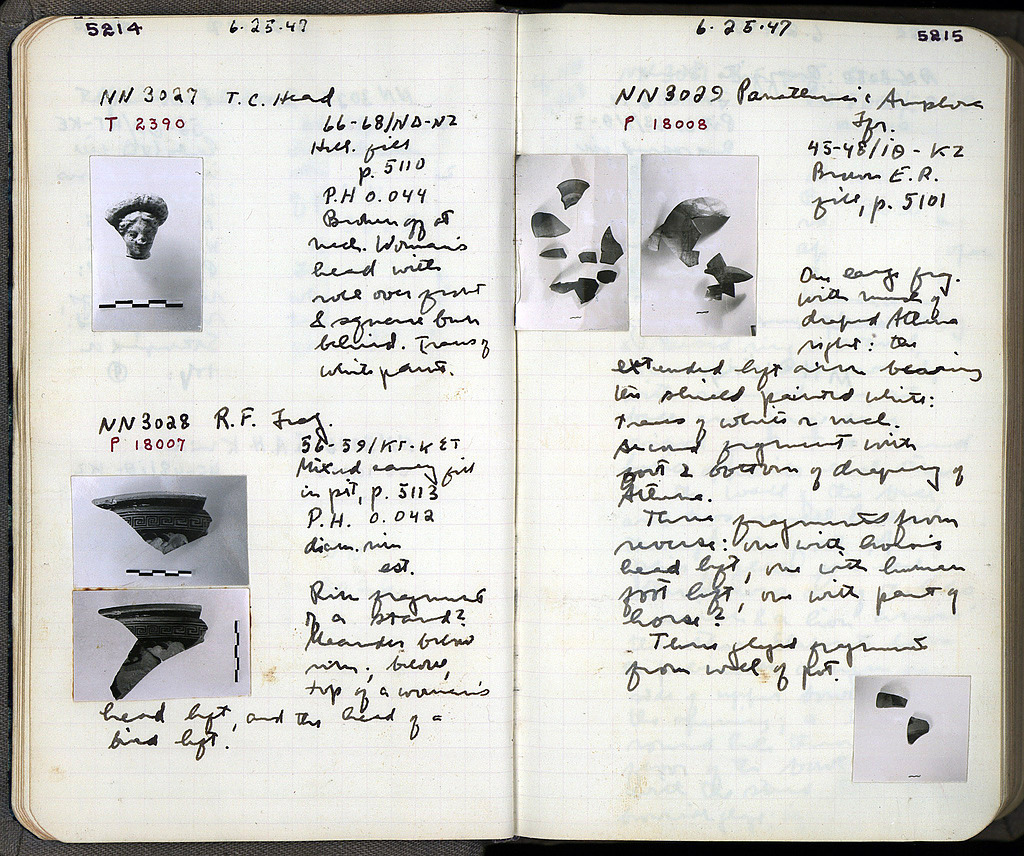 5214
6.25.47
NN 3027 T.C. Head
T 2390
66-68/NΔ-NZ
Hell. fill
p. 5110
P.H 0.044
Broken off at
neck. Woman's
head with
roll over front
& square bun
behind. Traces of
white paint.
NN3028 R.F. Frag.
P 18007
56-59/KΓ-KΣΤ
Mixed sandy fill
in pit, p. 5113
P.H. 0.042
diam. rim
est.
Rim fragment
of a stand?
Meander below
rim; below,
top of a woman's
head left, and the head of a
bird left.
6.25.47
5215
NN3029 Panathenaic Amphora
Fr.
P 18008
45-48/ΙΘ-ΚΖ
Brown E.R.
fill, p. 5101
One large frag.
with much of
draped Athena
right: the
extended left arm bearing
the shield painted white:
traces of white on neck.
Second fragment with
foot & bottom of drapery of
Athena.
Three fragments from
reverse: one with horse's
head left, one with human
foot left, one with part of
horse?
Three glazed fragments
from wall of pot.